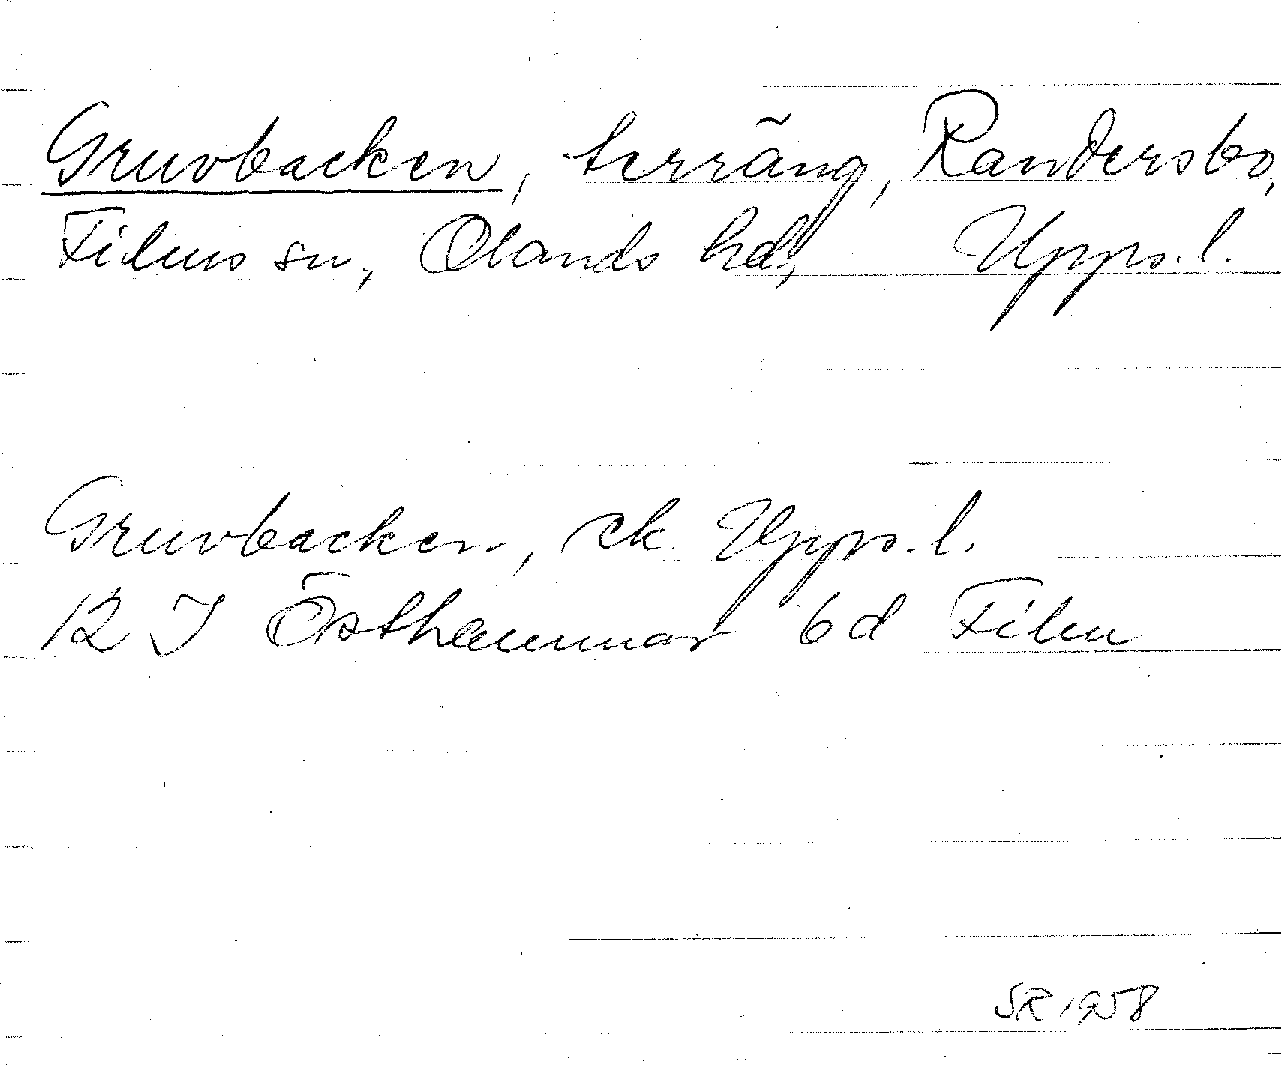 Gruvbacken, terräng, Randersbo,
Films sn, Olands hd, Upps. l.
Gruvbacken, ek. Upps. l.
12 I Östhammar 6d Film
SR 1958